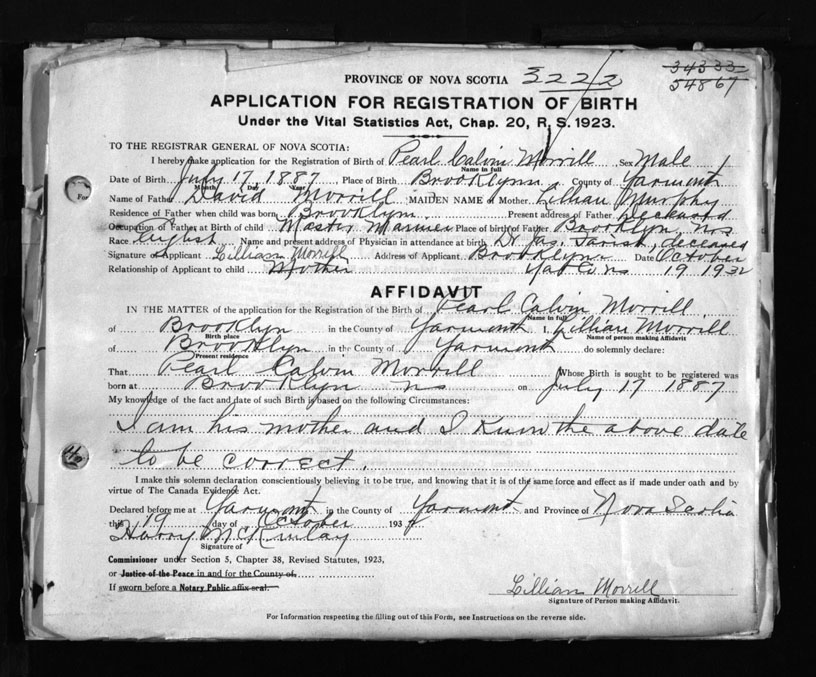 PROVINCE OF NOVA SCOTIA 3222 34333
54867
APPLICATION FOR REGISTRATION OF BIRTH
Under the Vital Statistics Act, Chap. 20, R, S. 1923.
TO THE REGISTRAR GENERAL OF NOVA SCOTIA:
I hereby make application for the Registration of Birth of Pearl Calvin Morrill Sex Male
Name in full
Date of Birth July 17, 1887 Place of Birth Brooklyn County of Yarmouth
Month Day Year
Name of Father David Morrill MAIDEN NAME of Mother Lillian Murphy
Residence of Father when child was born Brooklyn. Present address of Father Deceased
Occupation of Father at Birth of child Master Mariner Place of birth of Father Brooklyn, NS
Race English Name and present address of Physician in attendance at birth Dr Jas. deceased
Signature of Applicant Lillian Morrill Address of Applicant Brooklyn Date October
Relationship of Applicant to child Mother Yar Co NS 19 1932
AFFIDAVIT
IN THE MATTER of the application for the Registration of the Birth of Pearl Calvin Morrill
Name in full
of Brooklyn in the County of Yarmouth I, Lillian Morrill
Birth place Name of person making Affidavit
of Brooklyn in the County of Yarmouth do solemnly declare:
Present residence
That Pearl Calvin Morrill (Whose Birth is sought to be registered was
born at Brooklyn NS on July 17 1887
My knowledge of the fact and date of such Birth is based on the following Circumstances:
I am his mother and I know the above date
to be correct.
I make this solemn declaration conscientiously believing it to be true, and knowing that it is of the same force and effect as if made under oath and by
virtue of The Canada Evidence Act.
Declared before me at Yarmouth in the County of Yarmouth and Province of Nova Scotia
this 19 day of October 193
Harry McKinlay
Signature of
Commissioner under Section 5, Chapter 38, Revised Statutes, 1923,
or Justice of the Peace in and for the County of
If sworn before a Notary Public affix seal.
Lillian Morrill
Signature of Person making Affidavit.
For Information respecting the filling out of this Form, see Instructions on the reverse side.